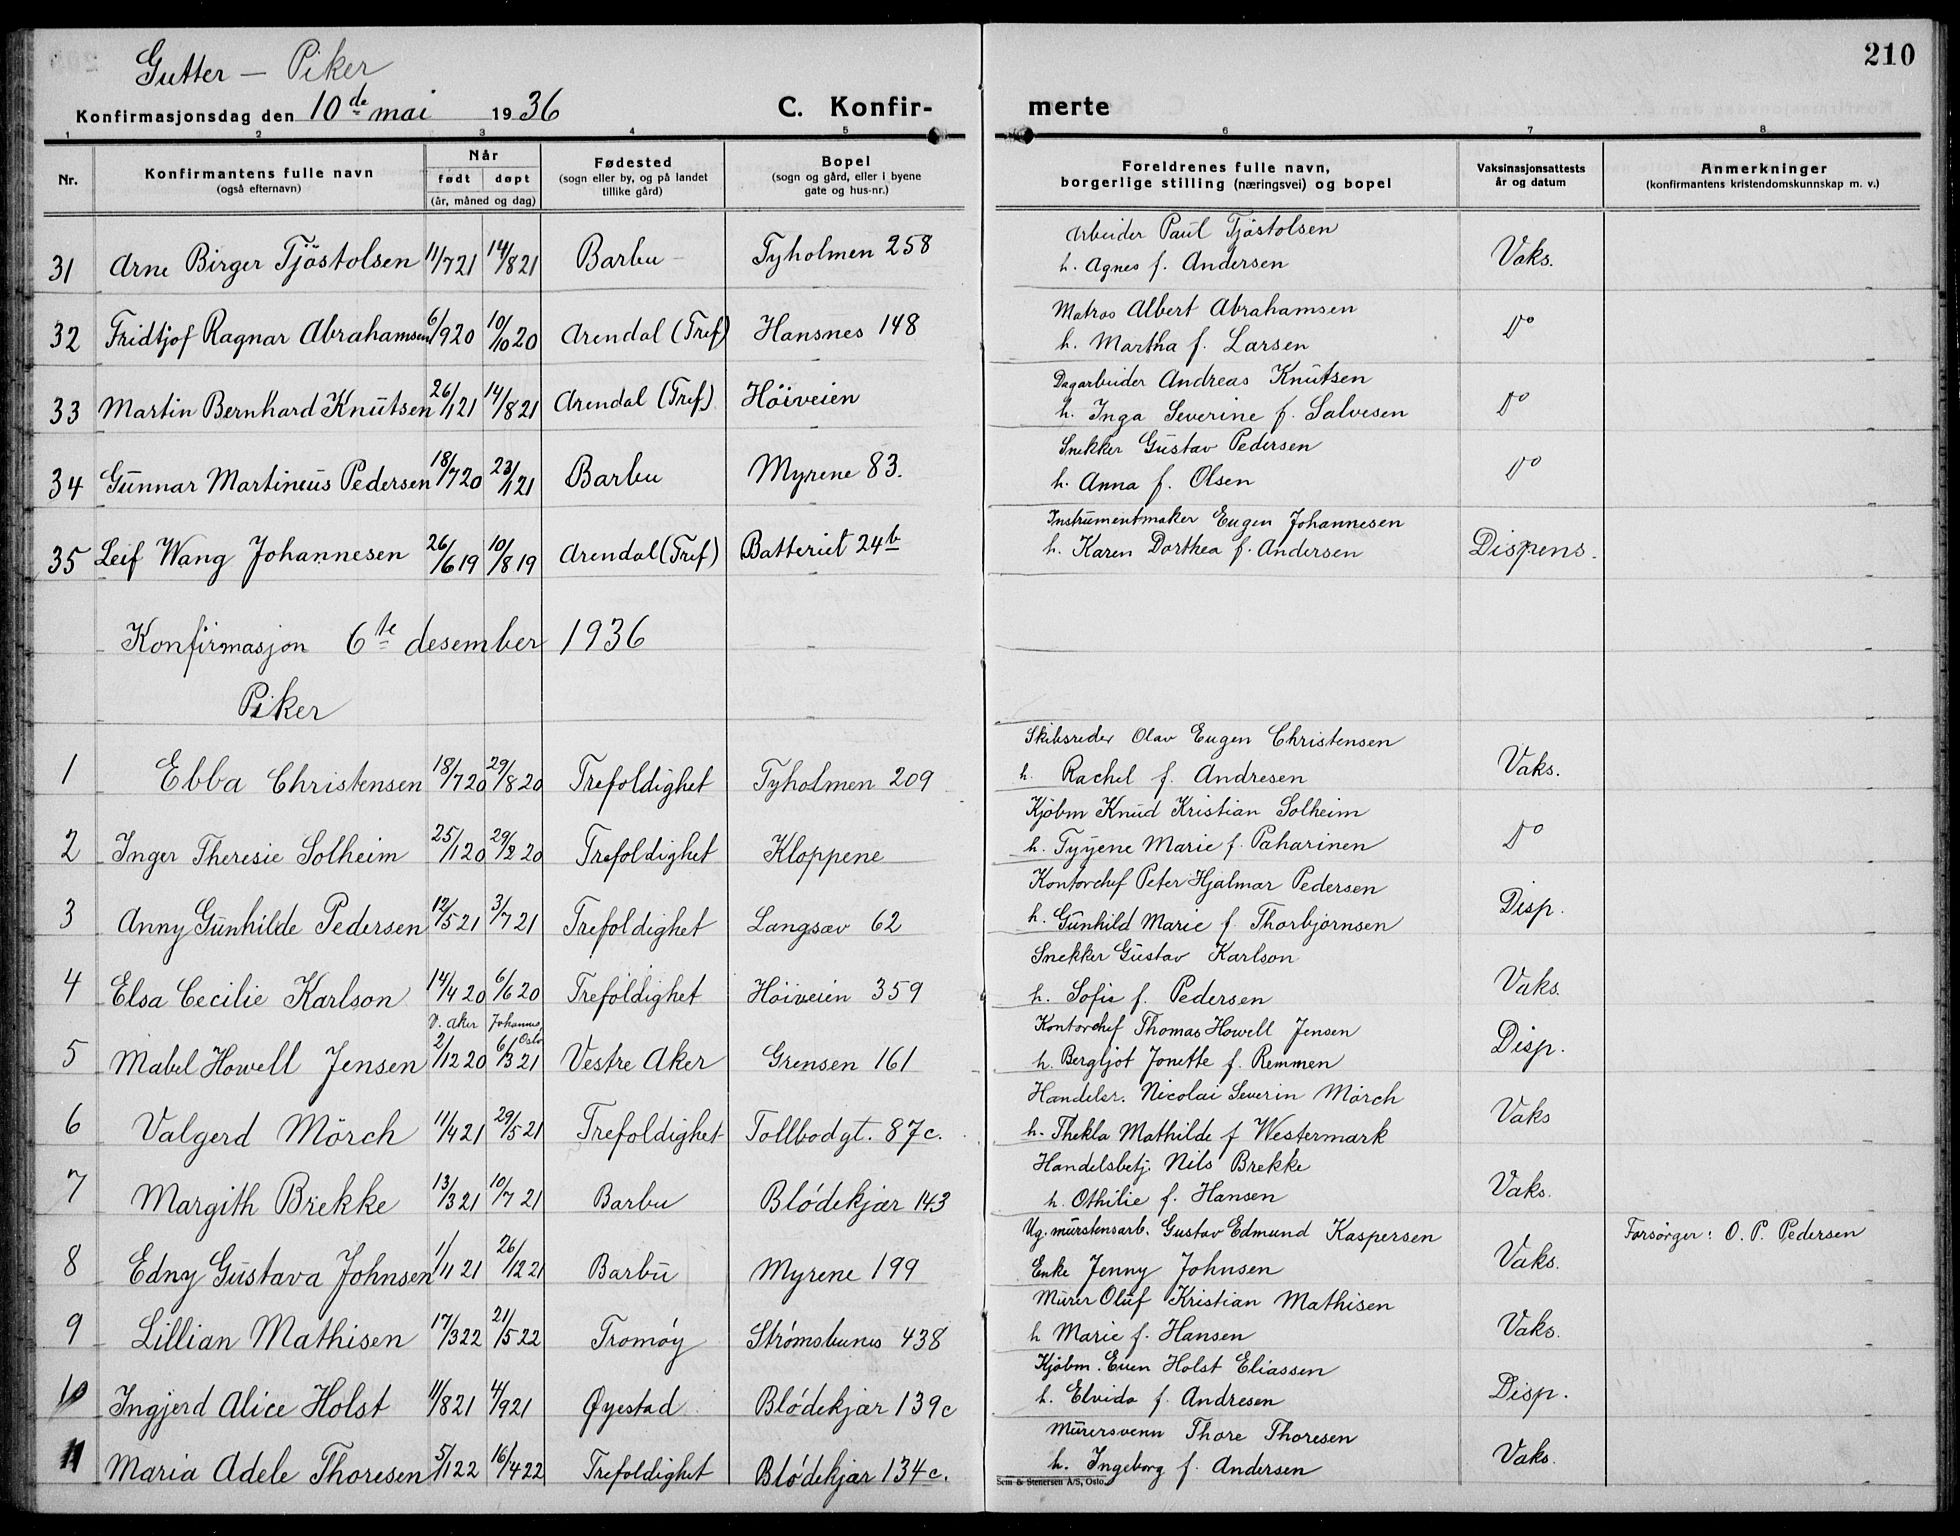 Gutter — Piker
210
Konfirmasjonsdag den 10de mai 1936
C. Konfir-
merte
1 2 3 4 5 6 7 8
Nr.
Konfirmantens fulle navn
(også efternavn)
Når
født døpt
(år, måned og dag)
Fødested
(sogn eller by, og på landet
tillike gård)
Bopel
(sogn og gård, eller i byene
gate og hus-nr.)
Foreldrenes fulle navn,
borgerlige stilling (næringsvei) og bopel
Vaksinasjonsattests
år og datum
Anmerkninger
(konfirmantens kristendomskunnskap m. v.)
Arbeider Paul Tjöstolsen
31 Arne Birger Tjöstolsen 11/7 21 14/8 21 Barbu Tyholmen 258 h. Agnes f. Andersen Vaks.
Matros Albert Abrahamsen
32 Fridtjof Ragnar Abrahamsen 6/9 20 10/10 20 Arendal (Tref) Hansnes 148 h. Martha f. Larsen Do
Dagarbeider Andreas Knutsen
33 Martin Bernhard Knutsen 26/1 21 14/8 21 Arendal (Tref) Höiveien h. Inga Severine f. Salvesen Do
Snekker Gustav Pedersen
34 Gunnar Martineus Pedersen 18/7 20 23/1 21 Barbu Myrene 83. h. Anna f. Olsen Do
Instrumentmaker Eugen Johannesen
35 Leif Wang Johannesen 26/6 19 10/8 19 Arendal (Tref) Batteriet 24b h. Karen Dorthea f. Andersen Dispens.
Konfirmasjon 6te desember 1936
Piker
Skibsreder Olav Eugen Christensen
1 Ebba Christensen 18/7 20 29/8 20 Trefoldighet Tyholmen 209 h. Rachel f. Andresen Vaks.
Kjöbm Knud Kristian Solheim
2 Inger Theresie Solheim 25/1 20 29/2 20 Trefoldighet Kloppene h. Tyyene Marie f. Paharinen Do
Kontorchef Peter Hjalmar Pedersen
3 Anny Gunhilde Pedersen 12/5 21 3/7 21 Trefoldighet Langsæv 62 h. Gunhild Marie f. Thorbjørnsen Disp.
Snekker Gustav Karlson
4 Elsa Cecilie Karlson 14/4 20 6/6 20 Trefoldighet Höiveien 359 h. Sofie f. Pedersen Vaks.
V. Aker Johannes, Oslo Kontorchef Thomas Howell Jensen
5 Mabel Howell Jensen 2/12 20 6/3 21 Vestre Aker Grensen 161 h. Bergljot Jonette f. Remmen Disp.
Handelsr. Nicolai Severin Mörch
6 Valgerd Mörch 11/4 21 29/5 21 Trefoldighet Tollbodgt. 87c. h. Thekla Mathilde f Westermark Vaks
Handelsbetj. Nils Brekke
7 Margith Brekke 13/3 21 10/7 21 Barbu Blödekjær 143 h. Othilie f. Hansen Vaks.
Ug. murstensarb. Gustav Edmund Kaspersen Forsørger: O. P. Pedersen
8 Edny Gustava Johnsen 1/11 21 26/12 21 Barbu Myrene 199 Enke Jenny Johnsen Vaks.
Murer Oluf Kristian Mathisen
9 Lillian Mathisen 17/3 22 21/5 22 Tromøy Strømsbunes 438 h Marie f. Hansen Vaks.
Kjöbm. Even Holst Eliassen
10 Ingjerd Alice Holst 11/8 21 4/9 21 Øyestad Blödekjær 139c h. Elvida f. Andresen Disp.
Murersvenn Thore Thoresen
11 Maria Adele Thoresen 5/1 22 16/4 22 Trefoldighet Blödekjær 134c. h. Ingeborg f. Andersen Vaks.
Sem & Stenersen A/S, Oslo.